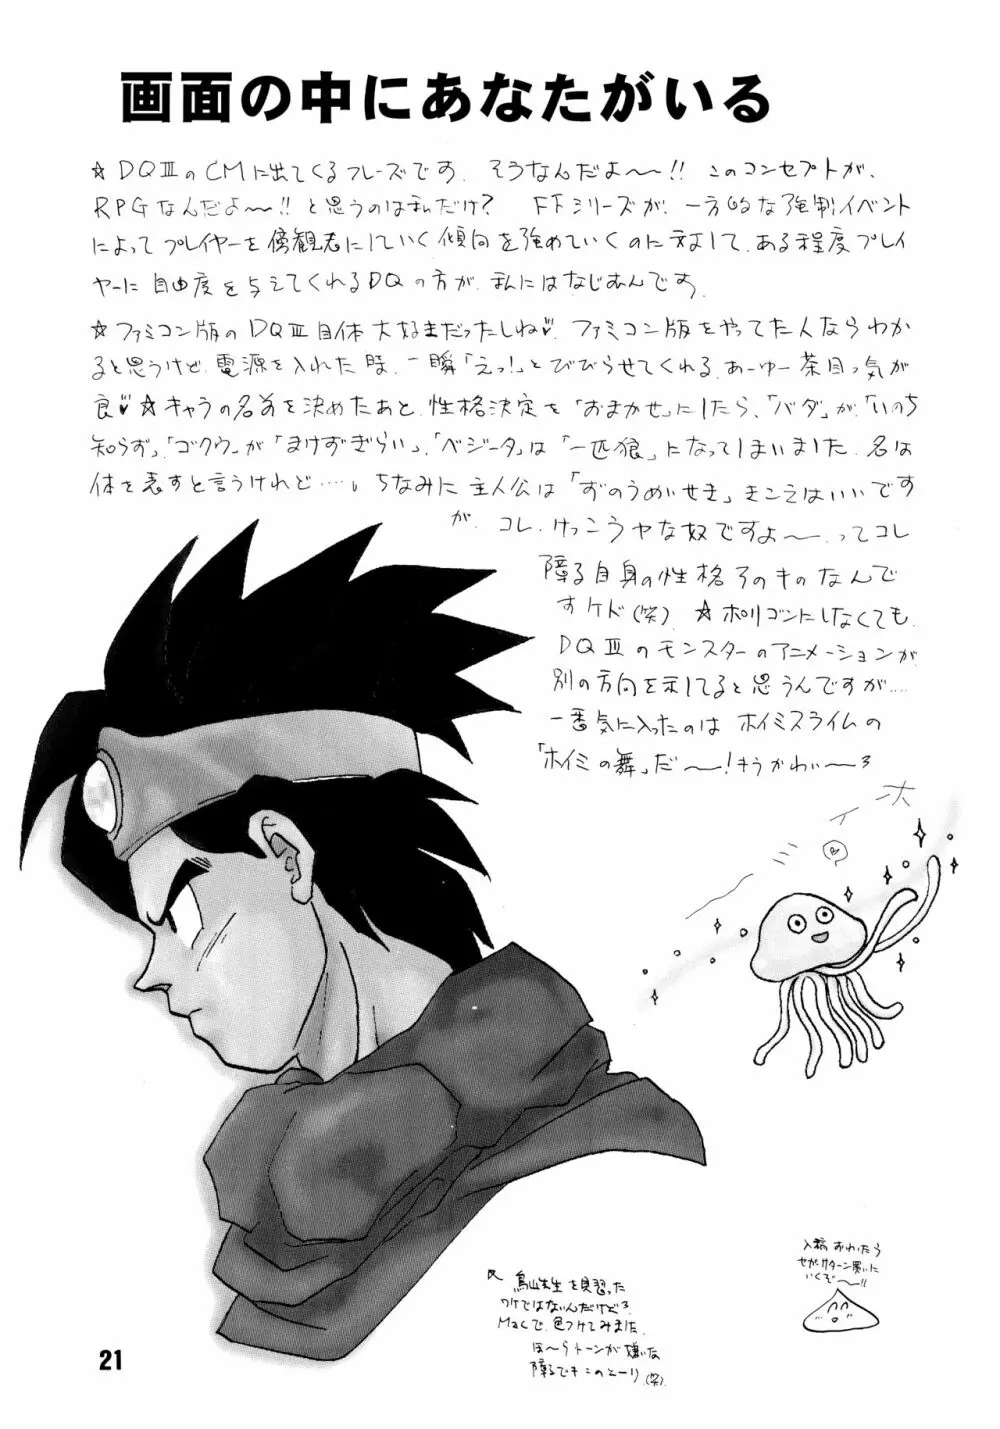 画面の中にあなたがいる
☆DQⅢのCMに出てくるフレーズです。そうなんだよ〜〜!! このコンセプトが、
RPGなんだよ〜〜!! と思うのは私だけ? FFシリーズが、一方的な強制イベント
によってプレイヤーを傍観者にしていく傾向を強めていくのに対して、ある程度プレイ
ヤーに自由度を与えてくれるDQの方が、私にはなじむんです。
☆ファミコン版のDQⅢ自体大好きだったしね♡ ファミコン版をやってた人ならわか
ると思うけど、電源を入れた時、一瞬「えっ!」とびびらせてくれる、あーゆー茶目っ気が
良♡ ☆キャラの名前を決めたあと、性格決定を「おまかせ」にしたら、「バダ」が、「いのち
知らず」、「ゴクウ」が「まけずぎらい」、「ベジータ」は「一匹狼」になってしまいました。名は
体を表すと言うけれど……。ちなみに主人公は「ずのうめいせき」きこえはいいです
が、コレ、けっこうヤな奴ですよ〜〜。ってコレ
障る自身の性格そのものなんで
すケド(笑)。☆ポリゴンにしなくても、
DQⅢのモンスターのアニメーションが、
別の方向を示してると思うんですが……
一番気に入ったのはホイミスライムの
「ホイミの舞」だ〜〜!もうかわい〜〜ろ
入稿おわったら
セガサターン買いに
いくぞ〜〜!!
☆鳥山先生を見習った
ワケではないんだけどろ
Macで、色つけてみました。
ほ〜らトーンが嫌いな
障るでもこのとーり(笑)。
21